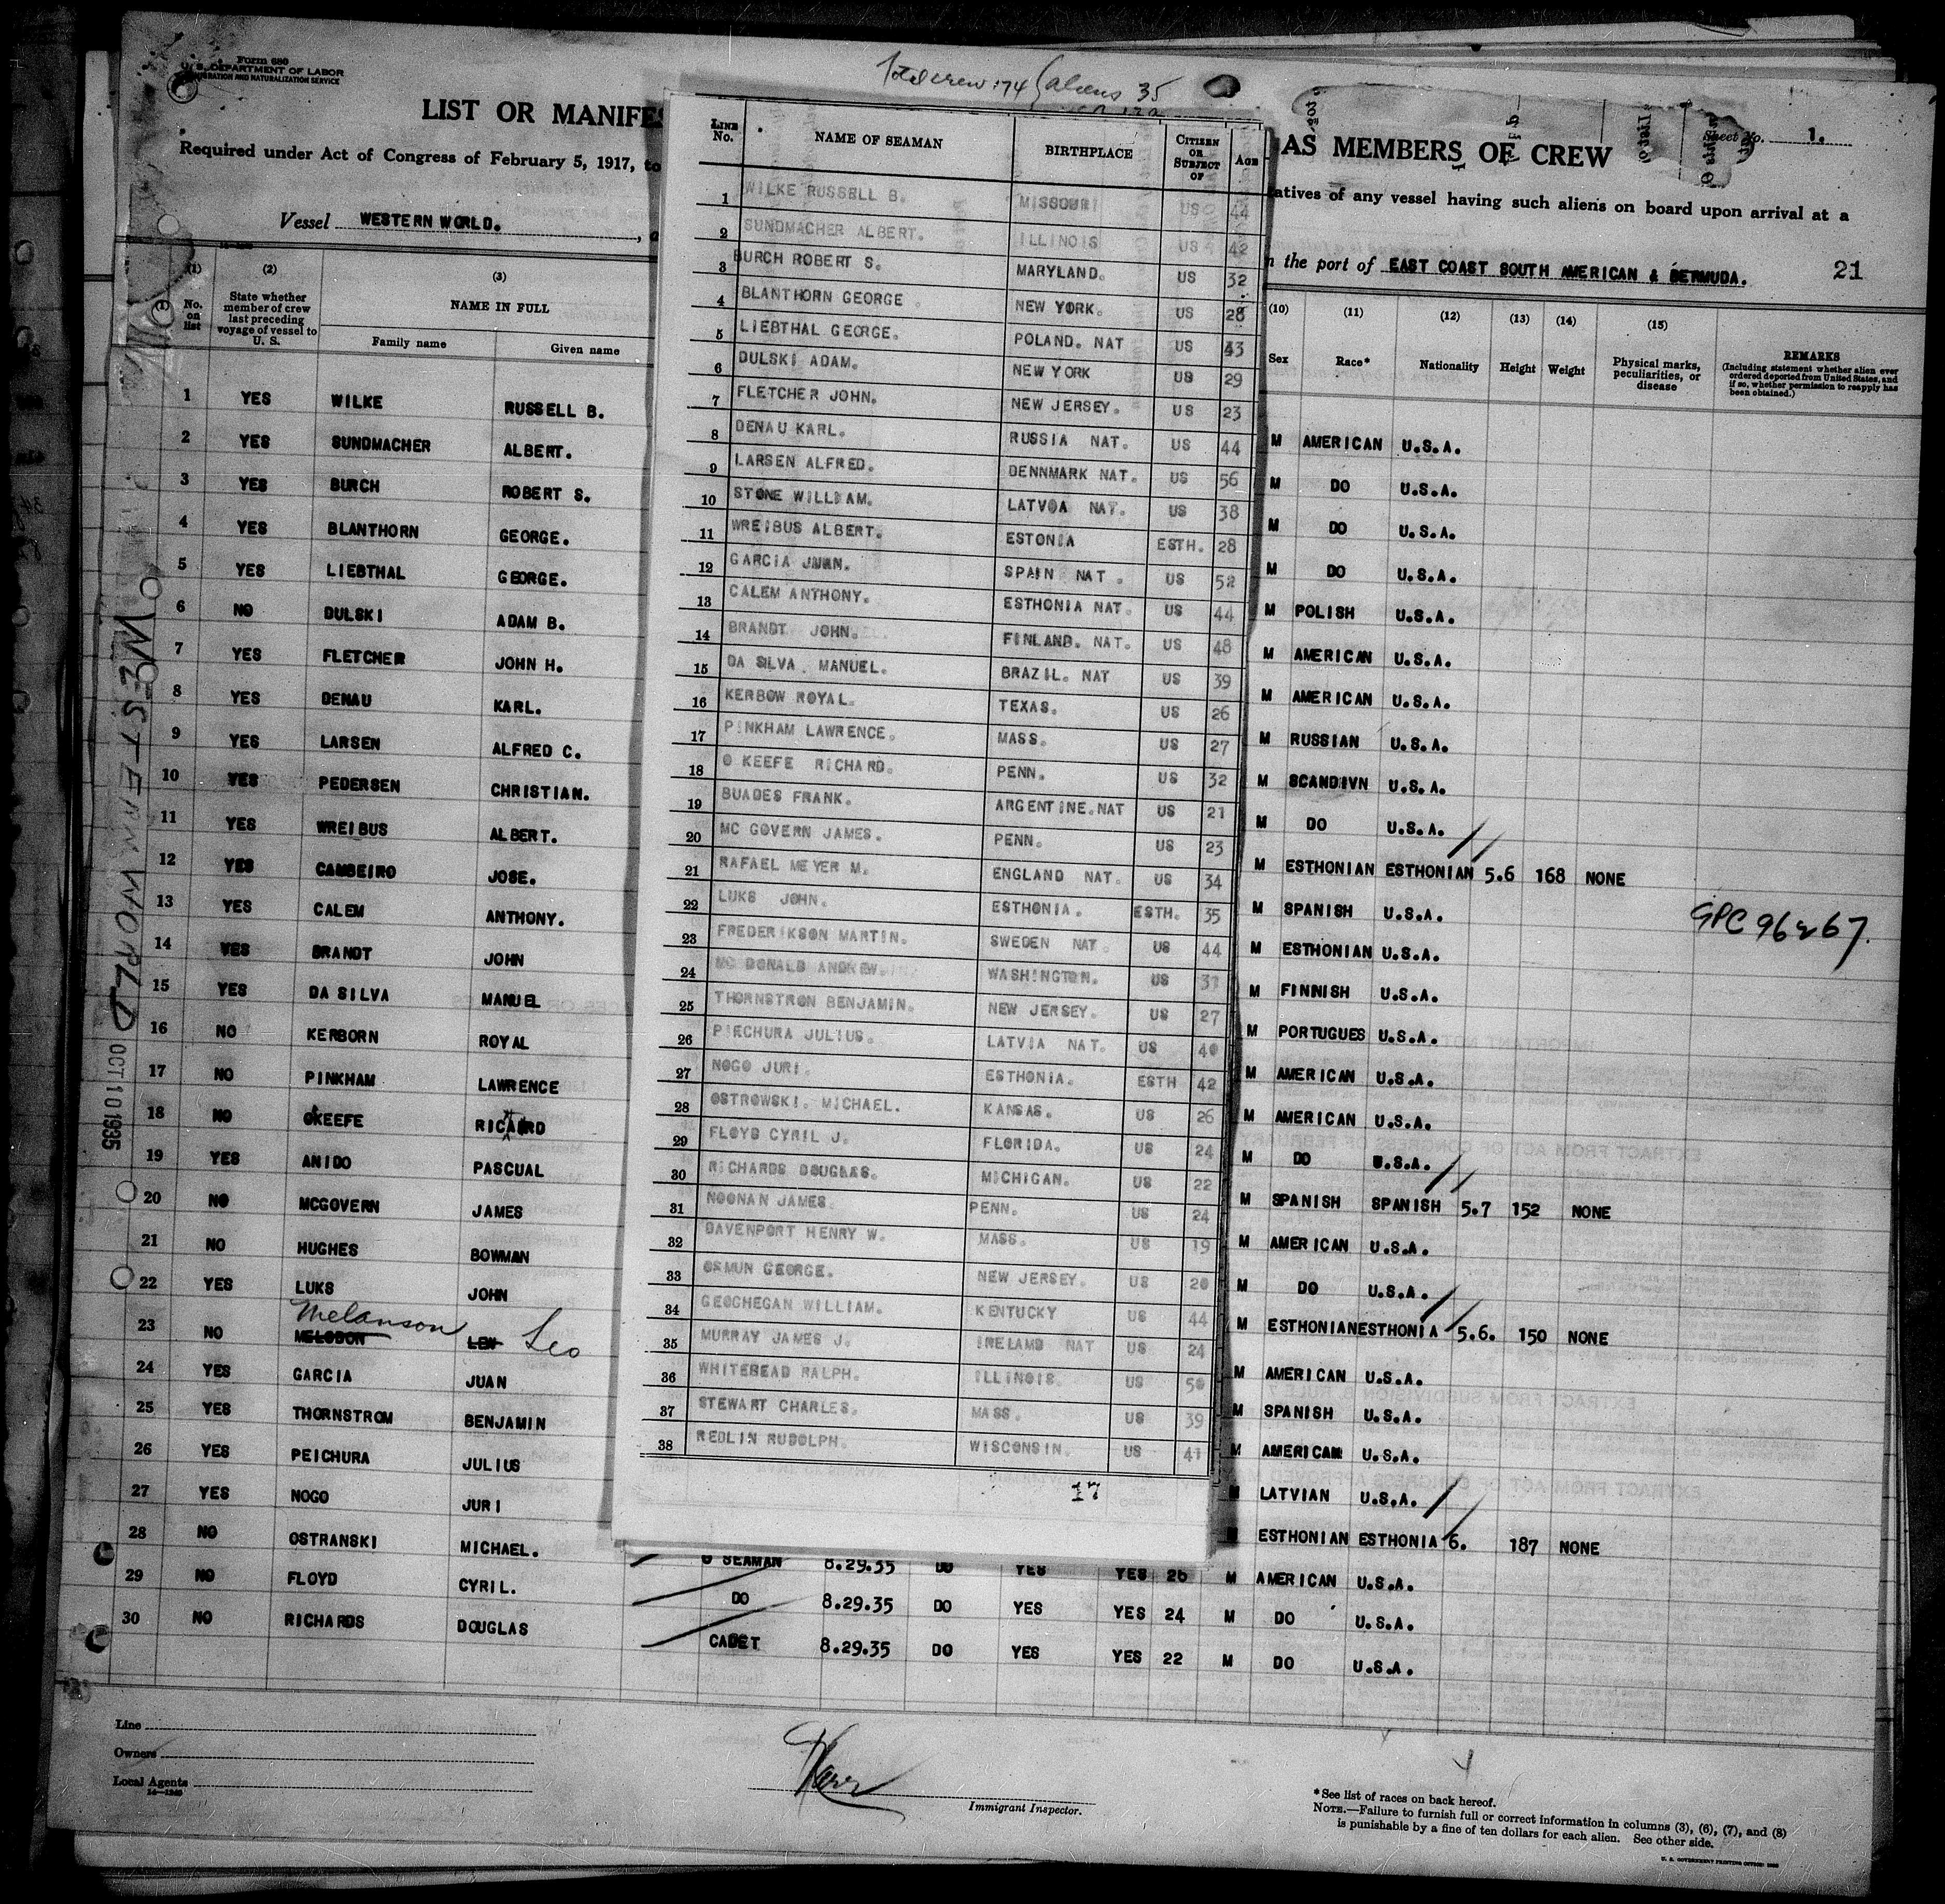 Form 680
U. S. DEPARTMENT OF LABOR
IMMIGRATION AND NATURALIZATION SERVICE
Total crew 174 aliens 35
LIST OR MANIFES
AS MEMBERS OF CREW
Sheet No. 1.
Required under Act of Congress of February 5, 1917, to
atives of any vessel having such aliens on board upon arrival at a
Vessel WESTERN WORLD.
n the port of EAST COAST SOUTH AMERICAN & BERMUDA. 21
(1) (2) (3)
No. on list
State whether member of crew last preceding voyage of vessel to U. S.
NAME IN FULL
Family name Given name
1 YES WILKE RUSSELL B.
2 YES SUNDMACHER ALBERT.
3 YES BURCH ROBERT S.
4 YES BLANTHORN GEORGE.
5 YES LIEBTHAL GEORGE.
6 NO DULSKI ADAM B.
7 YES FLETCHER JOHN H.
8 YES DENAU KARL.
9 YES LARSEN ALFRED C.
10 YES PEDERSEN CHRISTIAN.
11 YES WREIBUS ALBERT.
12 YES CAMBEIRO JOSE.
13 YES CALEM ANTHONY.
14 YES BRANDT JOHN
15 YES DA SILVA MANUEL
16 NO KERBORN ROYAL
17 NO PINKHAM LAWRENCE
18 NO OKEEFE RICAIRD
19 YES ANIDO PASCUAL
20 NO MCGOVERN JAMES
21 NO HUGHES BOWMAN
22 YES LUKS JOHN
Melanson
23 NO MELODON LEW Leo
24 YES GARCIA JUAN
25 YES THORNSTROM BENJAMIN
26 YES PEICHURA JULIUS
27 YES NOGO JURI
28 NO OSTRANSKI MICHAEL.
29 NO FLOYD CYRIL.
30 NO RICHARDS DOUGLAS
LINE No. NAME OF SEAMAN BIRTHPLACE CITIZEN OR SUBJECT OF AGE
1 WILKE RUSSELL B. MISSOURI US 44
2 SUNDMACHER ALBERT. ILLINOIS US 42
3 BURCH ROBERT S. MARYLAND. US 32
4 BLANTHORN GEORGE . NEW YORK. US 28
5 LIEBTHAL GEORGE. POLAND. NAT US 43
6 DULSKI ADAM. NEW YORK US 29
7 FLETCHER JOHN. NEW JERSEY. US 23
8 DENAU KARL. RUSSIA NAT. US 44
9 LARSEN ALFRED. DENNMARK NAT. US 56
10 STONE WILLIAM. LATVOA NAT. US 38
11 WREIBUS ALBERT. ESTONIA ESTH. 28
12 GARCIA JUAN. SPAIN NAT . US 52
13 CALEM ANTHONY. ESTHONIA NAT. US 44
14 BRANDT JOHN. FINLAND. NAT. US 48
15 DA SILVA. MANUEL. BRAZIL. NAT US 39
16 KERBOW ROYAL. TEXAS. US 26
17 PINKHAM LAWRENCE. MASS. US 27
18 O KEEFE RICHARD. PENN. US 32
19 BUADES FRANK. ARGENTINE.NAT US 21
20 MC GOVERN JAMES. PENN. US 23
21 RAFAEL MEYER M. ENGLAND NAT. US 34
22 LUKS JOHN. ESTHONIA. ESTH. 35
23 FREDERIKSON MARTIN. SWEDEN NAT. US 44
24 MC DONALD ANDREW. WASHINGTON. US
25 THORNSTRON BENJAMIN. NEW JERSEY. US 27
26 PIECHURA JULIUS. LATVIA NAT. US 40
27 NOGO JURI. ESTHONIA. ESTH 42
28 OSTROWSKI. MICHAEL. KANSAS. US 26
29 FLOYD CYRIL J. FLORIDA. US 24
30 RICHARDS DOUGLAS. MICHIGAN. US 22
31 NOONAN JAMES. PENN. US 24
32 DAVENPORT HENRY W. MASS. US 19
33 OSMUN GEORGE. NEW JERSEY. US 20
34 GEOGHEGAN WILLIAM. KENTUCKY US 44
35 MURRAY JAMES J. IRELAND NAT US 24
36 WHITEHEAD RALPH. ILLINOIS. US 50
37 STEWART CHARLES. MASS. US 39
38 REDLIN RUDOLPH. WISCONSIN. US 41
17
(10) (11) (12) (13) (14) (15)
Sex Race* Nationality Height Weight Physical marks, peculiarities, or disease
REMARKS
(Including statement whether alien ever ordered deported from United States, and if so, whether permission to reapply has been obtained.)
M AMERICAN U.S.A.
M DO U.S.A.
M DO U.S.A.
M DO U.S.A.
M POLISH U.S.A.
M AMERICAN U.S.A.
M AMERICAN U.S.A.
M RUSSIAN U.S.A.
M SCANDIVN U.S.A.
M DO U.S.A.
M ESTHONIAN ESTHONIAN 5.6 168 NONE
M SPANISH U.S.A. GPC 96267.
M ESTHONIAN U.S.A.
M FINNISH U.S.A.
M PORTUGUES U.S.A.
M AMERICAN U.S.A.
M AMERICAN U.S.A.
M DO U.S.A.
M SPANISH SPANISH 5.7 152 NONE
M AMERICAN U.S.A.
M DO U.S.A.
M ESTHONIAN ESTHONIA 5.6. 150 NONE
M AMERICAN U.S.A.
M SPANISH U.S.A.
M AMERICAN U.S.A.
M LATVIAN U.S.A.
M ESTHONIAN ESTHONIA 6. 187 NONE
O SEAMAN 8.29.35 DO YES YES 26 M AMERICAN U.S.A.
DO 8.29.35 DO YES YES 24 M DO U.S.A.
CADET 8.29.35 DO YES YES 22 M DO U.S.A.
WESTERN WORLD OCT 10 1935
Line
Owners
Local Agents
14—1240
Immigrant Inspector.
*See list of races on back hereof.
NOTE.—Failure to furnish full or correct information in columns (3), (6), (7), and (8)
is punishable by a fine of ten dollars for each alien. See other side.
U. S. GOVERNMENT PRINTING OFFICE